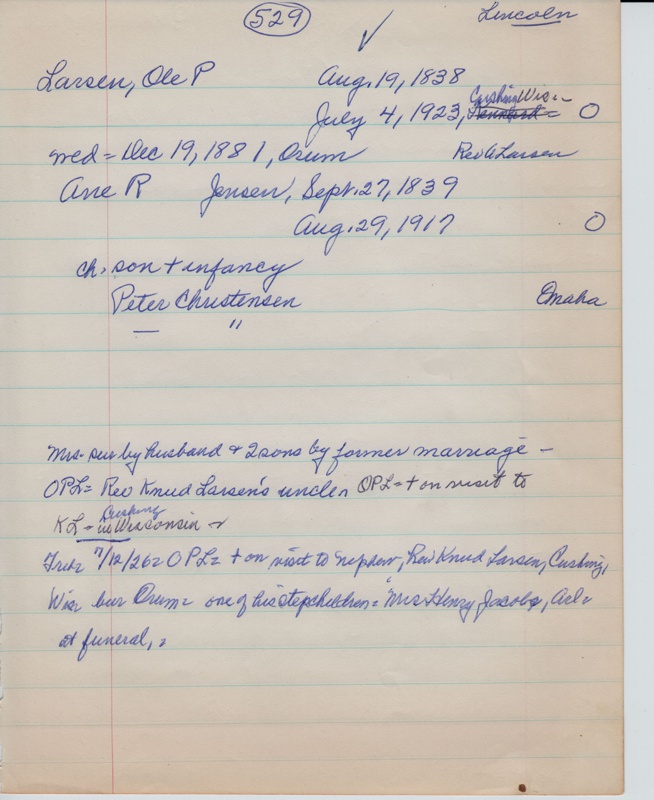 529
Lincoln
Larsen, Ole P Aug. 19, 1838
Cushing Wis -
July 4, 1923, Kennard - O
wed = Dec 19, 1881, Orum Rev A Larsen
Ane R Jensen, Sept. 27, 1839
Aug. 29, 1917 O
ch. son + infancy
Peter Christensen Omaha
— "
Mrs - sur by husband & 2 sons by former marriage -
OPL = Rev Knud Larsen's uncle OPL = + on visit to
Cushing
KL = in Wisconsin
7/12/26 = OPL = + on visit to nephew, Rev Knud Larsen, Cushing,
Wis = bur Orum = one of his stepchildren = "Mrs Henry Jacobs, Arl =
at funeral,